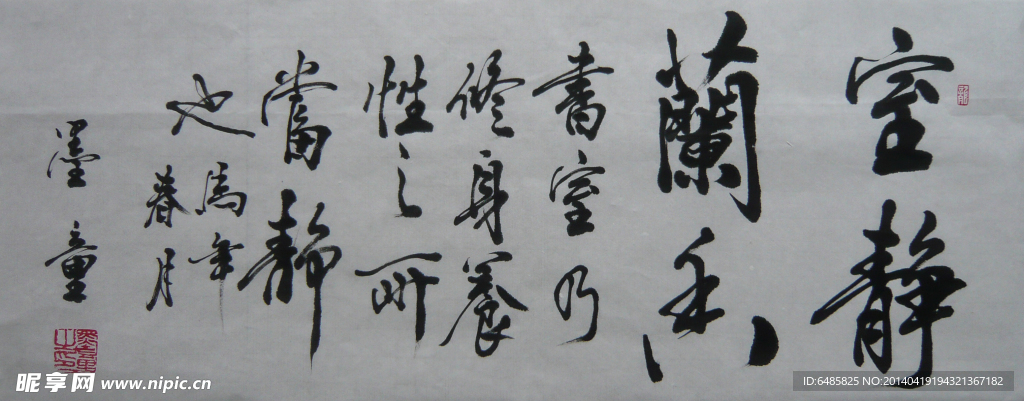 室靜
蘭香
書室乃
修身養
性之所
當靜
也馬年
春月
墨童
昵享网 www.nipic.cn
ID:6485825 NO:20140419194321367182